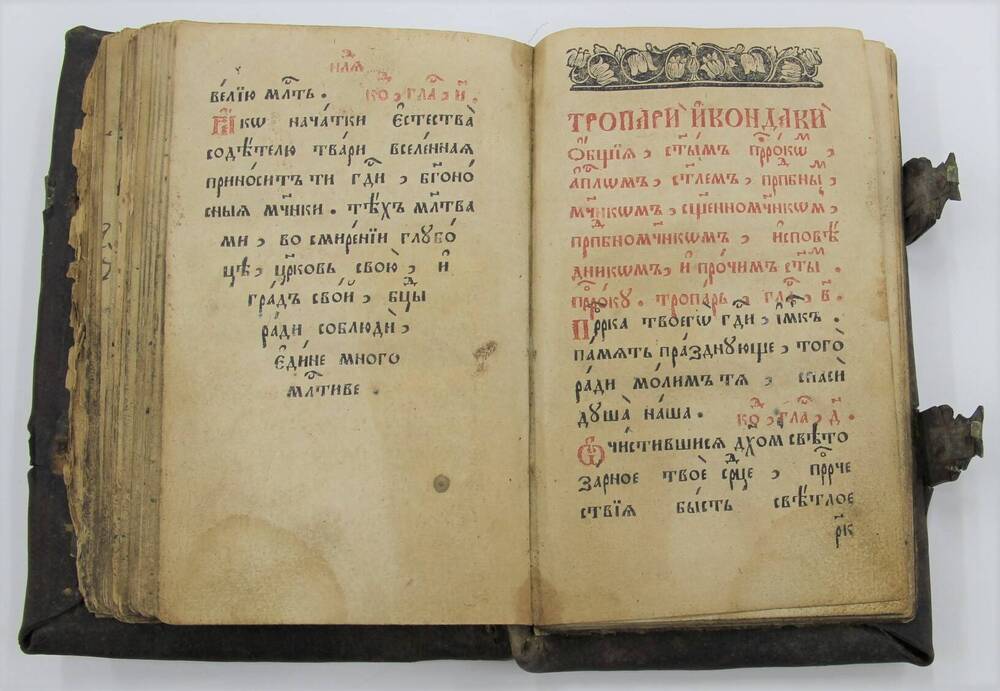 нлѧ
ве́лїю млⷭ҇ть . ко, гла, и҃ .
Ꙗ҆́кѡ нача́тки є҆стества̀
содѣ́телю тва́ри вселе́нная
прино́ситъ ти гдⷭ҇и , бг҃оно́
сныя мч҃нки . тѣ́хъ мл҃тва
ми , во смире́нїи глубо́
цѣ , цр҃ковь свою̀ , и҆
гра́дъ сво́й , бцⷣы
ра́ди соблюдѝ ,
є҆ди́не много
млⷭ҇тиве .
ТРОПАРЍ И҆КОНДАКЍ
Ѻ҆́бщїя , ст҃ы́мъ прⷪ҇ро́кѡⷨ ,
а҆пⷭ҇лѡмъ , ст҃лемъ , прпⷣбныⷨ ,
мч҃нкѡмъ , сщ҃енномч҃нкѡмъ ,
прпⷣбномч҃нкѡмъ , и҆сповѣ́
дникѡмъ , и҆ про́чимъ ст҃ыⷨ .
прⷪ҇ро́ку . тропа́рь , гла , в҃ .
Прⷪ҇рка твоегѡ̀ гдⷭ҇и , і҆мⷬ҇къ .
па́мять пра́зднующе , того̀
ра́ди мо́лимъ тѧ , спаси
душа̀ на́ша . ко , гла , д҃ .
Ѡ҆чи́стившися дх҃омъ свѣ́то
за́рное твоѐ срⷣце , прⷪ҇рче
ствїя бы́сть свѣ́тлое
рк